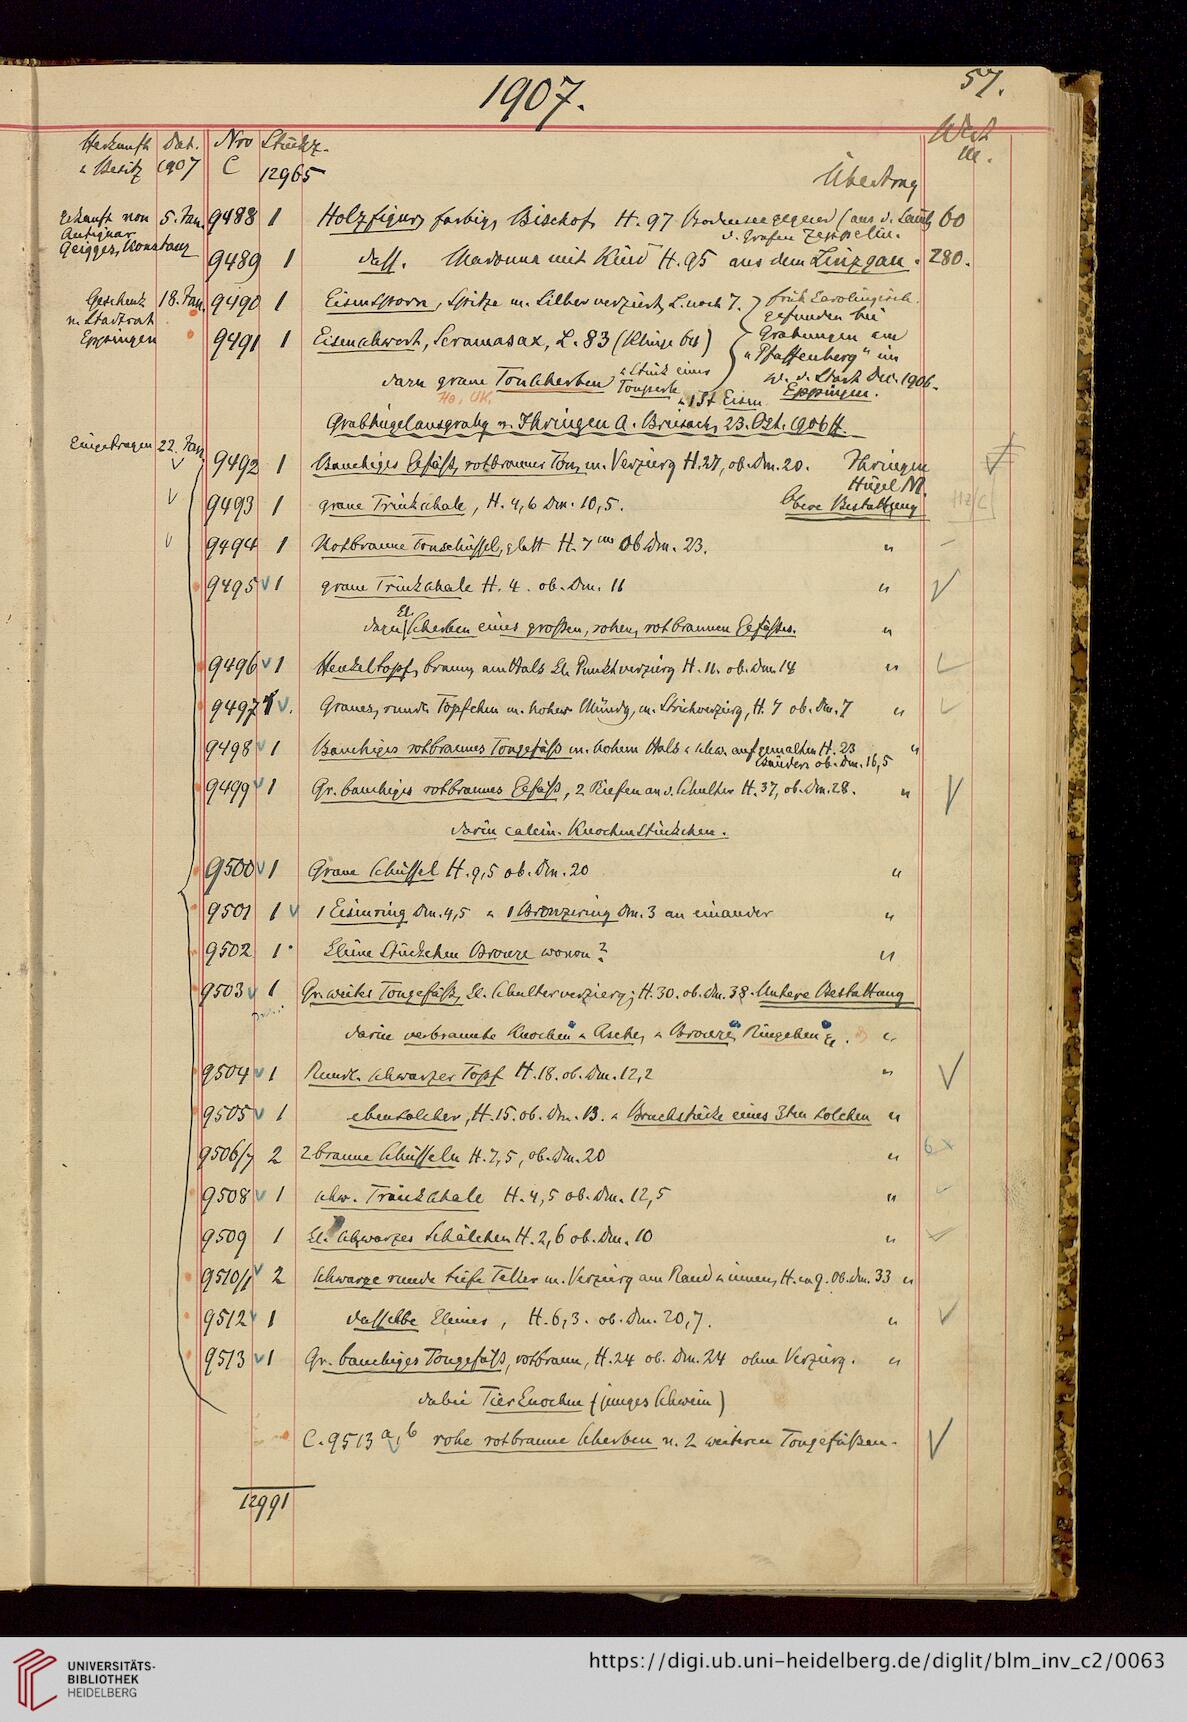 1907.
57.
Herkunft Dat. Nro Stückz. Wert
u. Besitz 1907 C 12965 M.
Übertrag
Erkauft von 5. Jan. 9488 1 Holzfigur, farbig, Bischof, H. 97 Bodenseegegend (aus d. Samlg 60
Antiquar d. Grafen Zeppelin.
Geigges, Konstanz 9489 1 dass. Madonna mit Kind H. 95 aus dem Linzgau. 280.
Geschenk 18. Jan. 9490 1 Eisensporn, Spitze m. Silber verziert, L. noch 7. früh karolingisch.
v. Stadtrat gefunden bei
Eppingen 9491 1 Eisenschwert, Scramasax, L. 83 (Klinge 64) Grabungen am
"Pfaffenberg" im
dazu graue Tonscherben u Stück eines W. d. Stadt Dec. 1906.
Tonperle Eppingen.
u 1 St Eisen
Grabhügelausgrabg v. Ihringen A. Breisach, 23. Okt. 1906 ff.
Eingetragen 22. Jan.
9492 1 Bauchiges Gefäß, rotbrauner Ton, m. Verzierg H. 27, ob. Dm. 20. Ihringen
Hügel M.
9493 1 graue Trinkschale, H. 4,6 Dm. 10,5. Obere Bestattung
9494 1 Rotbraune Tonschüssel, glatt H. 7 cm Ob Dm. 23. "
9495 1 graue Trinkschale H. 4. ob. Dm. 11 "
dazu kl. Scherben eines großen, rohen, rotbraunen Gefäßes. "
9496 1 Henkeltopf, braun, am Hals kl. Punktverzierg H. 11. ob. Dm. 14 "
9497 1 Graues, rundl. Töpfchen m. hoher Mündg, m. Strichverzierg, H. 7 ob. Dm. 7 "
9498 1 Bauchiges rotbraunes Tongefäß m. hohem Hals u schw. aufgemalten H. 23 "
Bändern ob. Dm. 16,5
9499 1 Gr. bauchiges rotbraunes Gefäß, 2 Riefen an d. Schulter H. 37, ob. Dm. 28. "
darin calcin. Knochenstückchen.
9500 1 Graue Schüssel H. 9,5 ob. Dm. 20 "
9501 1 1 Eisenring Dm. 4,5 u 1 Bronzering Dm. 3 an einander "
9502 1 kleine Stückchen Bronze wovon? "
9503 1 Gr. weites Tongefäß, kl. Schulterverzierg; H. 30. ob. Dm. 38. Untere Bestattung
darin verbrannte Knochen u Asche, u Bronze Ringelchen "
9504 1 Rundl. schwarzer Topf H. 18. ob. Dm. 12,2 "
9505 1 ebensolcher, H. 15. ob. Dm. 13. u Bruchstücke eines 3ten solchen "
9506/7 2 2 braune Schüsseln H. 7,5, ob. Dm. 20 "
9508 1 schw. Trinkschale H. 4,5 ob. Dm. 12,5 "
9509 1 kl. schwarzes Schälchen H. 2,6 ob. Dm. 10 "
9510/11 2 Schwarze runde tiefe Teller m. Verzierg am Rand u innen, H. 9. Ob. Dm. 33 "
9512 1 dasselbe kleiner, H. 6,3. ob. Dm. 20,7. "
9513 1 Gr. bauchiges Tongefäß, rotbraun, H. 24 ob. Dm. 24 ohne Verzierg. "
dabei Tierknochen (junges Schwein)
C. 9513 a,b rohe rotbraune Scherben v. 2 weiteren Tongefäßen.
12991
UNIVERSITÄTS-
BIBLIOTHEK
HEIDELBERG
https://digi.ub.uni-heidelberg.de/diglit/blm_inv_c2/0063